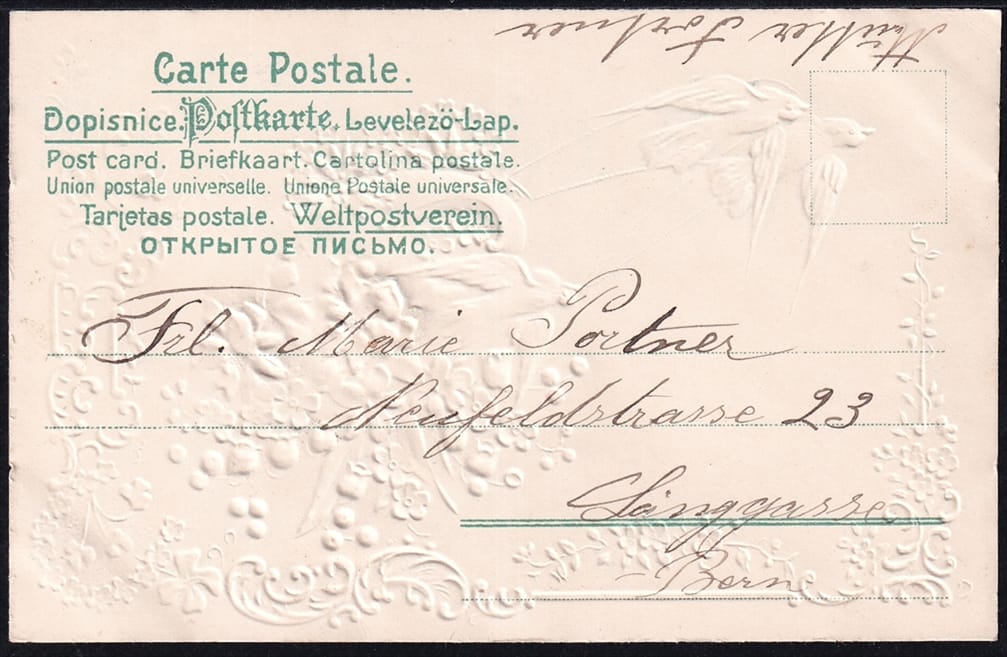 Carte Postale.
Dopisnice. Postkarte. Levelezö-Lap.
Post card. Briefkaart. Cartolina postale.
Union postale universelle. Unione Postale universale.
Tarjetas postale. Weltpostverein.
ОТКРЫТОЕ ПИСЬМО.
Frl. Marie Portner
Neufeldstrasse 23
Länggasse
Bern